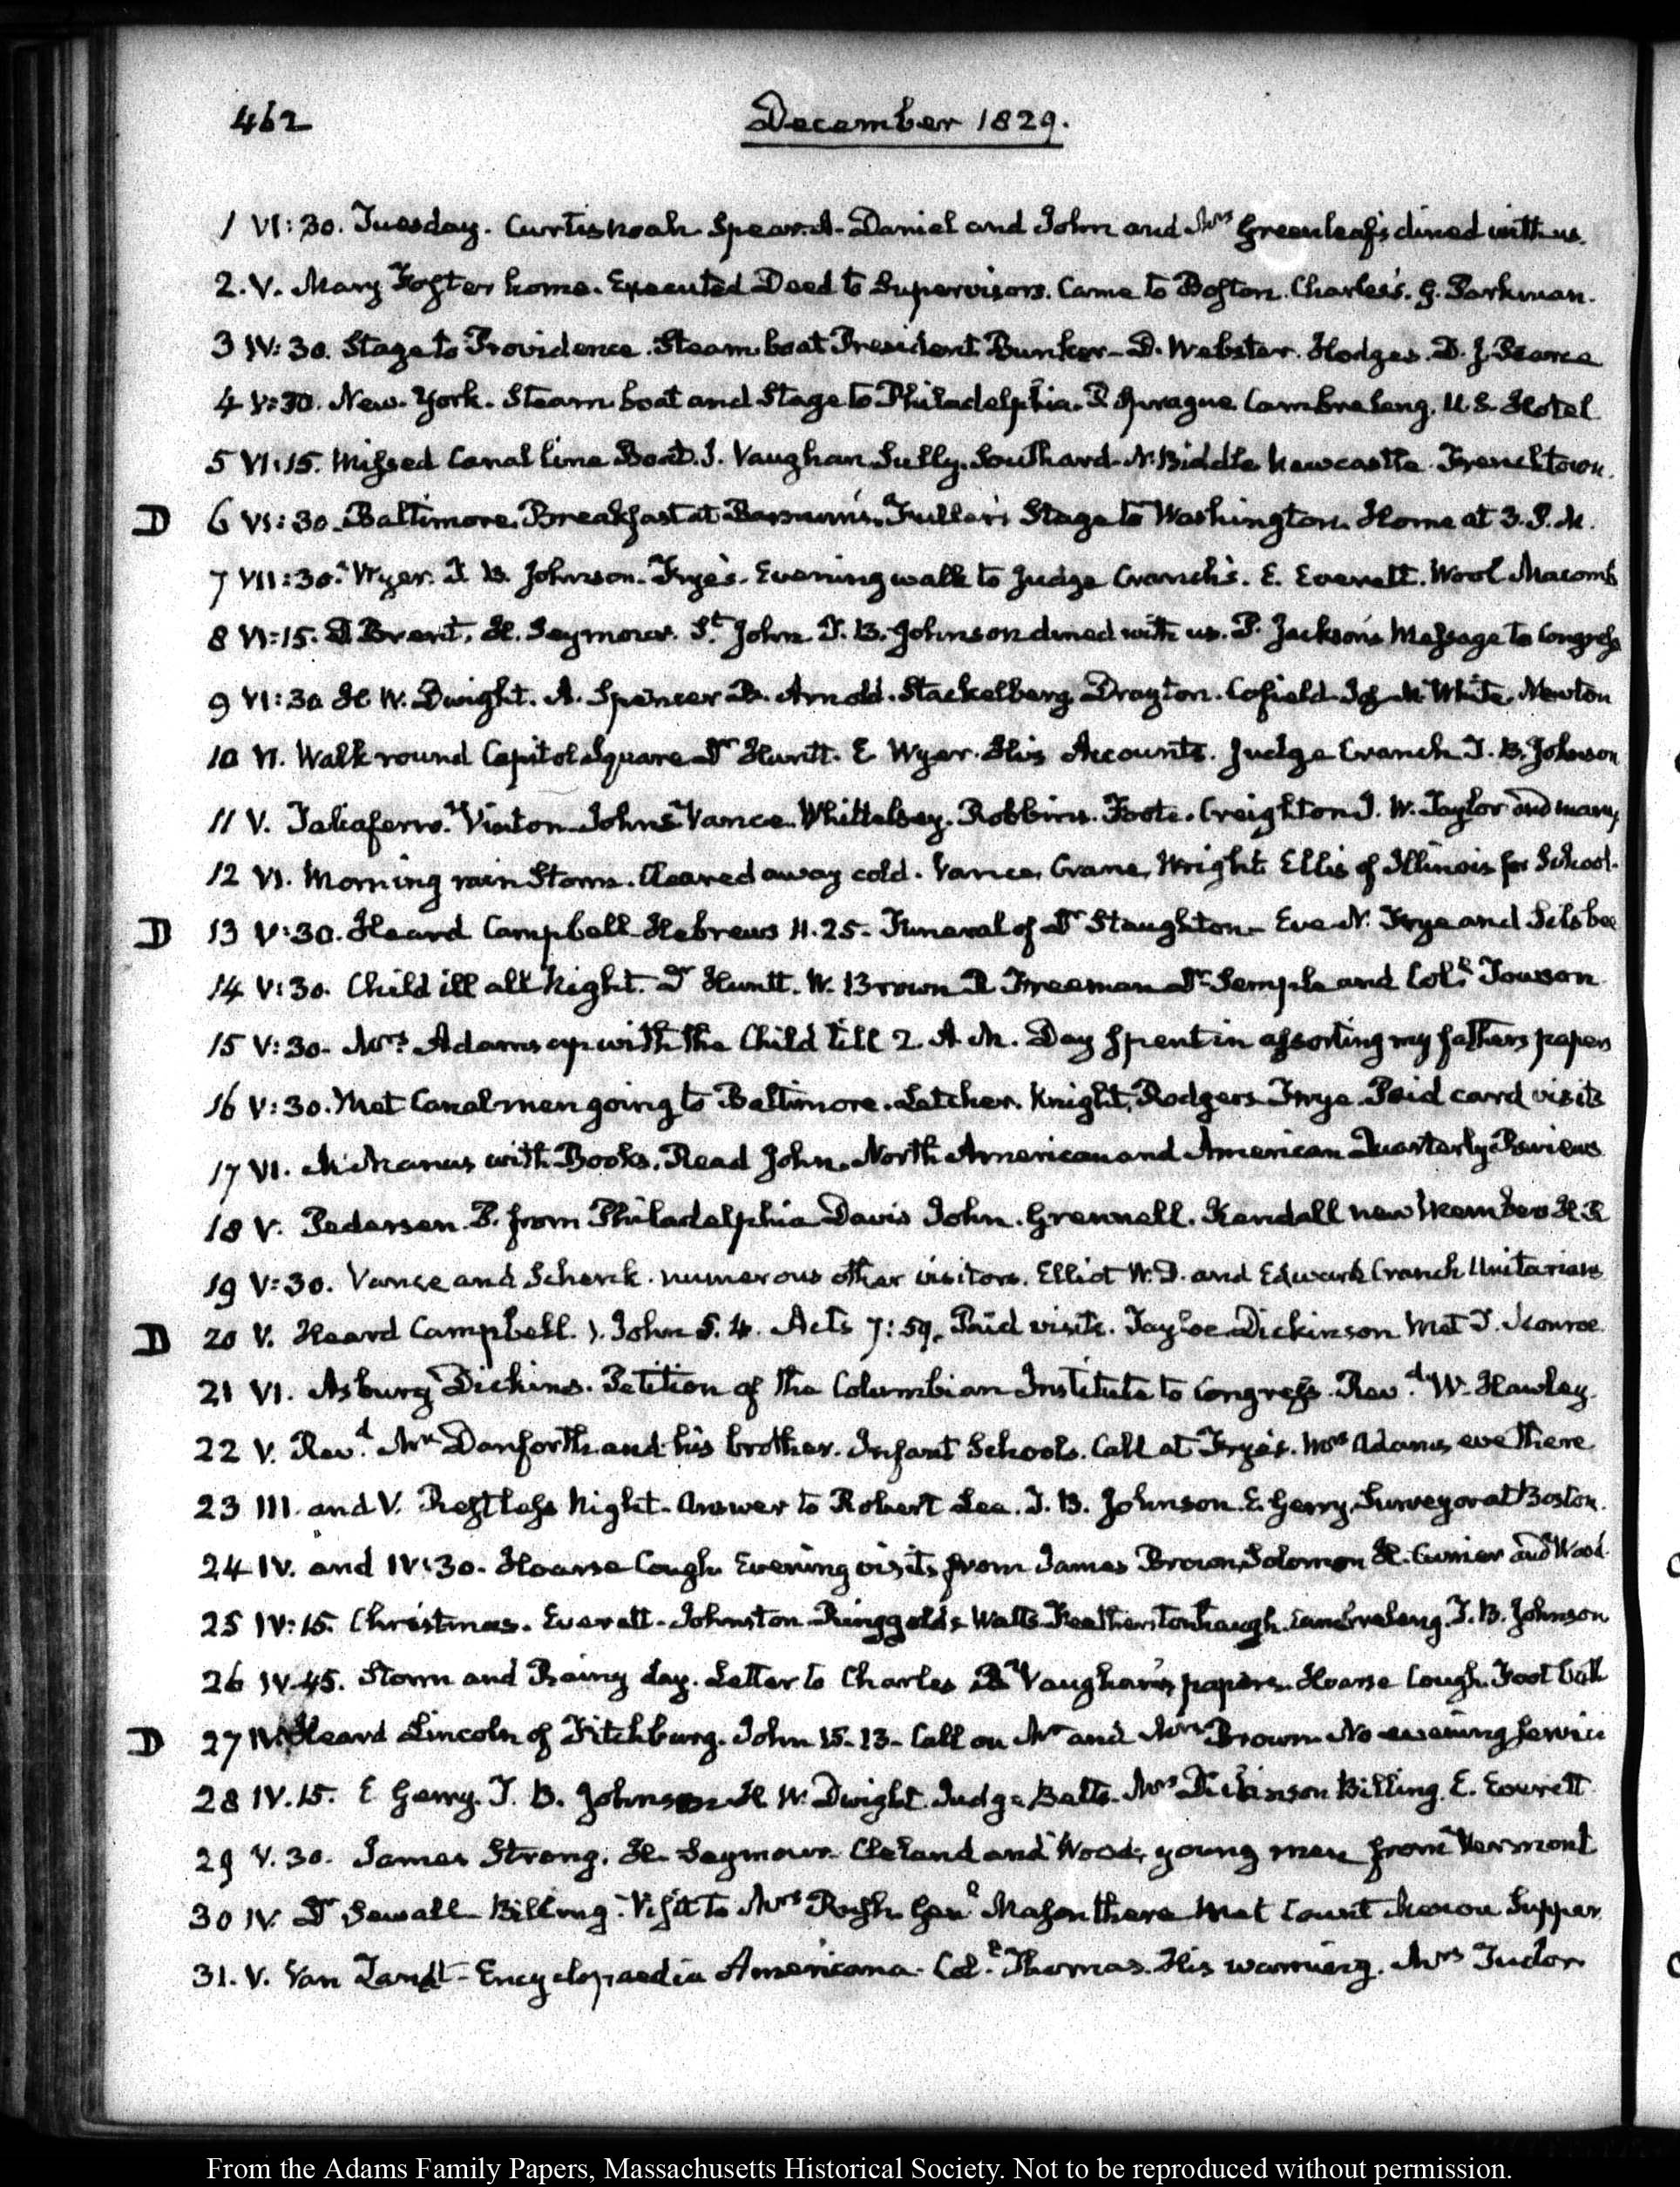 462
December 1829.
1 VI:30. Tuesday. Curtis Noah. Spear. A. Daniel and John and Mrs Greenleaf's dined with us.
2. V. Mary Foster home. Executed Deed to Supervisors. Came to Boston. Charles's. G. Parkman.
3 IV:30. Stage to Providence. Steam boat President Bunker. D. Webster. Hodges. D. J. Pearce
4 V:30. New-York. Steam boat and Stage to Philadelphia. P Sprague Cambreleng. U.S. Hotel
5 VI:15. Missed Canal line Boat. J. Vaughan Sully. Southard. N. Biddle Newcastle. Frenchtown.
D 6 VI:30. Baltimore. Breakfast at Barnum's. Fuller's Stage to Washington. Home at 3. P.M.
7 VII:30. Wyer. T. B. Johnson. Frye's. Evening walk to Judge Cranch's. E. Everett. Wool Macomb
8 VI:15. D Brent. H. Seymour. St John T. B. Johnson dined with us. P. Jackson's Message to Congress
9 VI:30 H W. Dwight. A. Spencer B. Arnold. Stackelberg Drayton. Jos M. White. Newton
10 VI. Walk round Capitol Square Dr Huntt. E Wyer. His Accounts. Judge Cranch T. B. Johnson
11 V. Taliaferro. Vinton Johns Vance. Whittelsey. Robbins. Foote. Creighton J. W. Taylor and many
12 VI. Morning rain Storm. Cleared away cold. Vance, Crane, Wright Ellis of Illinois for School.
D 13 V:30. Heard Campbell Hebrews 11.25. Funeral of Dr Staughton. Eve N. Frye and Silsbee
14 V:30. Child ill all Night. Dr Huntt. W. Brown Freeman Dr Semple and Coll Towson
15 V:30. Mrs Adams up with the Child till 2. A.M. Day spent in assorting my father's papers
16 V:30. Met Canal men going to Baltimore. Letcher. Knight, Rodgers Frye. Paid card visits
17 VI. McManus with Books. Read John. North American and American Quarterly Reviews
18 V. Pedersen. P. from Philadelphia Davis John. Grennell. Kendall new Members H.R
19 V:30. Vance and Schenk. numerous other visitors. Elliot W. D. and Edward Cranch Unitarians
D 20 V. Heard Campbell. 1. John 5. 4. Acts 7:59. Paid visits. Tayloe Dickinson Met J. Monroe
21 VI. Asbury Dickins. Petition of the Columbian Institute to Congress. Revd W. Hawley.
22 V. Revd Mr Danforth and his brother. Infant Schools. Call at Frye's. Mrs Adams eve there
23 III. and V. Restless Night. Answer to Robert Lee. T. B. Johnson. E. Gerry, Surveyor at Boston.
24 IV. and IV:30. Hoarse Cough. Evening visits from James Brown, Solomon H. and Wood
25 IV:15. Christmas. Everett. Johnston Ringgold's Watts Featherstonhaugh. Cambreleng. T. B. Johnson
26 IV.45. Storm and Rainy day. Letter to Charles B Vaughan's papers. Hoarse Cough. Foot ball
D 27 IV. Heard Lincoln of Fitchburg. John 15.13. Call on Mr and Mrs Brown No evening service
28 IV.15. E Gerry. T. B. Johnson H. W. Dwight Judge Betts. Mrs Dickinson Billing. E. Everett
29 V.30. James Strong. H. Seymour. Cleland and Wood, young men from Vermont
30 IV. Dr Sewall Billing. Visit to Mrs Rush. Genl Mason there Met Count Menou Supper
31. V. Van Zandt. Encyclopaedia Americana. Coll Thomas. His warning. Mrs Tudor
From the Adams Family Papers, Massachusetts Historical Society. Not to be reproduced without permission.